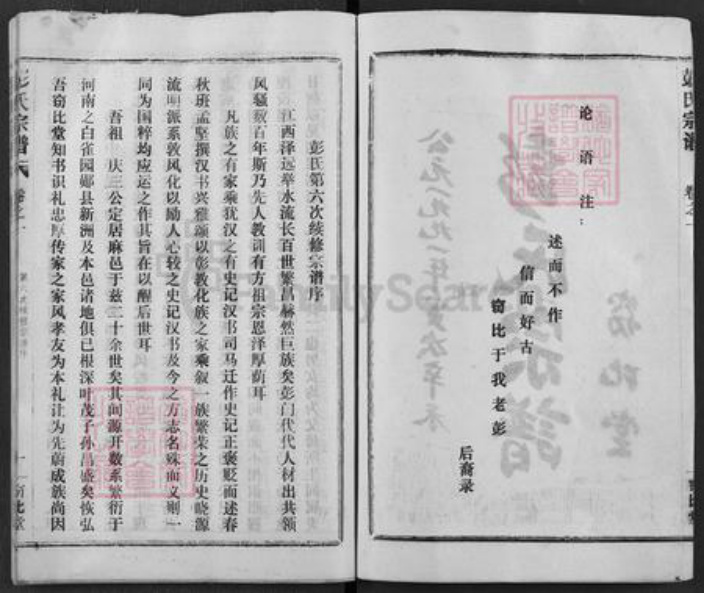 彭氏宗谱
卷之一
论语注：
述而不作
信而好古
窃比于我老彭
后裔录
彭氏第六次续修宗谱序
江西泽远举水流长百世繁昌赫然巨族矣彭门代代人材出共领
风骚数百年斯乃先人教训有方祖宗恩泽厚荫耳
凡族之有家乘犹汉之有史记汉书司马迁作史记正褒贬而述春
秋班孟坚撰汉书兴雅颂以彰教化族之家乘叙一族繁荣之历史晓源
流明派系敦风化以励人心较之史记汉书及今之方志名殊而义则一
同为国粹均应运之作其旨在以醒后世耳
吾祖 庆三公定居麻邑于兹二十余世矣其间源开数系繁衍于
河南之白雀园郧县新洲及本邑诸地俱已根深叶茂子孙昌盛矣恢弘
吾窃比堂知书识礼忠厚传家之家风孝友为本礼让为先蔚成族尚因
彭氏宗谱
卷之一
一
窃比堂
FamilySearch